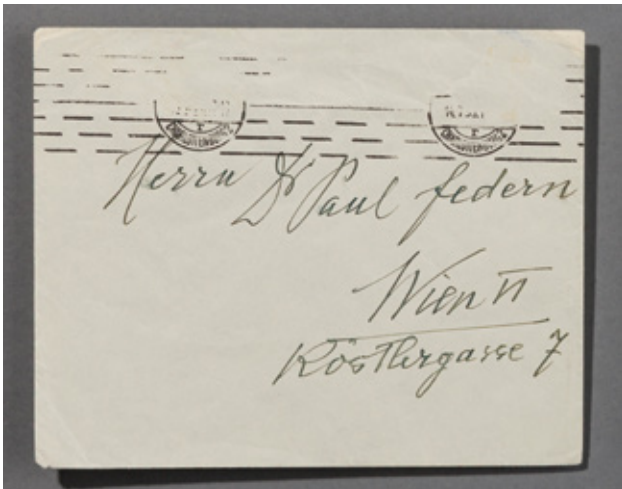 Herrn Dr Paul Federn
Wien VI
Köstlergasse 7